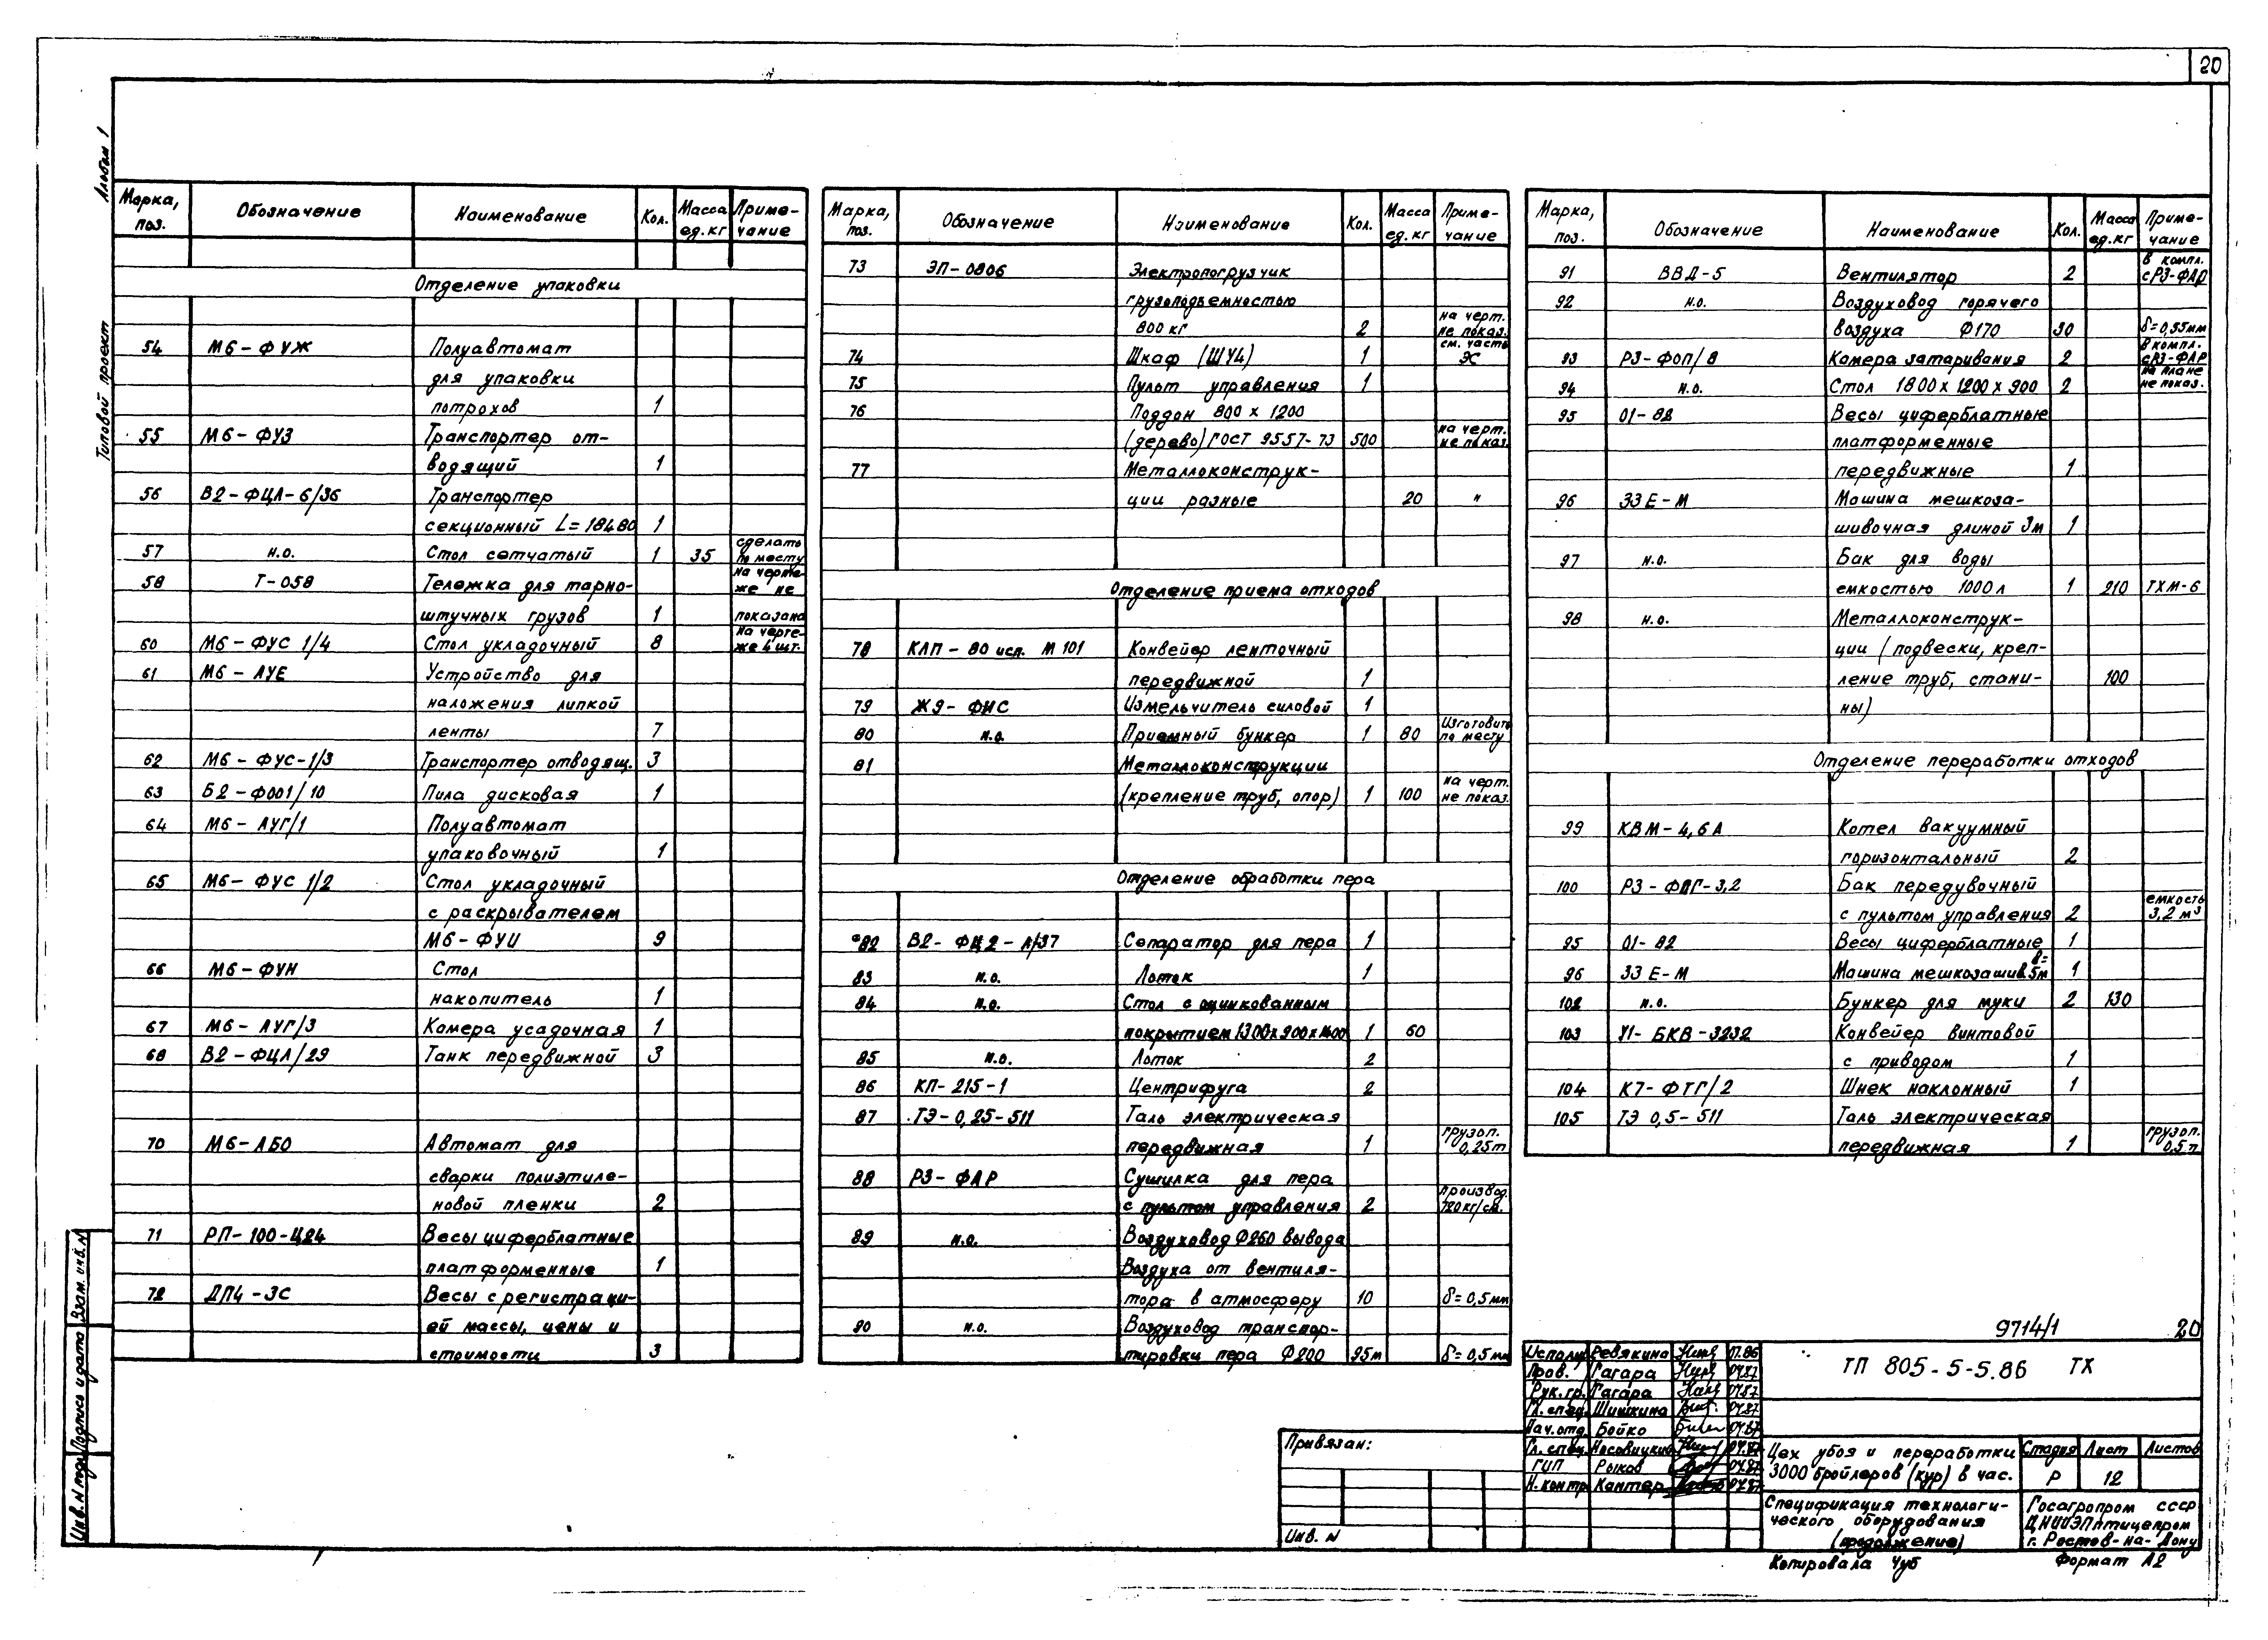 20
Альбом 1
Типовой проект
Марка, поз. Обозначение Наименование Кол. Масса ед.кг Приме-чание
Отделение упаковки
54 М6-ФУЖ Полуавтомат
для упаковки
потрохов 1
55 М6-ФУЗ Транспортер от-
водящий 1
56 В2-ФЦЛ-6/36 Транспортер
секционный L=18480 1
57 н.о. Стол сетчатый 1 35 сделать по месту
58 Т-058 Тележка для тарно- на черте-же не
штучных грузов 1 показана
60 М6-ФУС 1/4 Стол укладочный 8 на черте-же 4 шт.
61 М6-АУЕ Устройство для
наложения липкой
ленты 7
62 М6-ФУС-1/3 Транспортер отводящ. 3
63 Б2-ФОО1/10 Пила дисковая 1
64 М6-АУГ/1 Полуавтомат
упаковочный 1
65 М6-ФУС 1/2 Стол укладочный
с раскрывателем
М6-ФУИ 9
66 М6-ФУН Стол
накопитель 1
67 М6-АУГ/3 Камера усадочная 1
68 В2-ФЦЛ/29 Танк передвижной 3
70 М6-АБО Автомат для
сварки полиэтиле-
новой пленки 2
71 РП-100-Ц24 Весы циферблатные
платформенные 1
72 ДП4-3С Весы с регистраци-
ей массы, цены и
стоимости 3
Марка, поз. Обозначение Наименование Кол. Масса ед.кг Приме-чание
73 ЭП-0806 Электропогрузчик
грузоподъемностью
800 кг 2 на черт. не показ.
74 Шкаф (ШУ4) 1 см. часть ЭС
75 Пульт управления 1
76 Поддон 800 х 1200
(дерево) ГОСТ 9557-73 500 на черт. не показ.
77 Металлоконструк-
ции разные 20 "
Отделение приема отходов
78 КЛП-80 исп. М 101 Конвейер ленточный
передвижной 1
79 Ж9-ФИС Измельчитель силовой 1
80 н.о. Приемный бункер 1 80 Изготовить по месту
81 Металлоконструкции
(крепление труб, опор) 1 100 на черт. не показ.
Отделение обработки пера
82 В2-ФЦ2-Л/37 Сепаратор для пера 1
83 н.о. Лоток 1
84 н.о. Стол с оцинкованным
покрытием 1300х900х1400 1 60
85 н.о. Лоток 2
86 КП-215-1 Центрифуга 2
87 ТЭ-0,25-511 Таль электрическая
передвижная 1 грузоп. 0,25т
88 РЗ-ФАР Сушилка для пера
с пультом управления 2 производ. 720 кг/см.
89 н.о. Воздуховод Ф260 вывода
Воздуха от вентиля-
тора в атмосферу 10 δ=0,5мм
90 н.о. Воздуховод транспор-
тировки пера Ф200 95м δ=0,5мм
Марка, поз. Обозначение Наименование Кол. Масса ед.кг Приме-чание
91 ВВД-5 Вентилятор 2 в компл. с РЗ-ФАР
92 н.о. Воздуховод горячего
воздуха Ф170 30 δ=0,55мм
93 РЗ-ФОП/8 Камера затаривания 2 в компл. с РЗ-ФАР
94 н.о. Стол 1800х1200х900 2 на плане не показ.
95 01-82 Весы циферблатные
платформенные
передвижные 1
96 33 Е-М Машина мешкоза-
шивочная длиной 3м 1
97 н.о. Бак для воды
емкостью 1000л 1 210 ТХМ-6
98 н.о. Металлоконструк-
ции (подвески, креп-
ление труб, стани- 100
ны)
Отделение переработки отходов
99 КВМ-4,6А Котел вакуумный
горизонтальный 2
100 РЗ-ФПГ-3,2 Бак передувочный
с пультом управления 2 емкость 3,2 м³
95 01-82 Весы циферблатные 1
96 33 Е-М Машина мешкозашив. в=5м 1
102 н.о. Бункер для муки 2 130
103 У1-БКВ-3232 Конвейер винтовой
с приводом 1
104 К7-ФТГ/2 Шнек наклонный 1
105 ТЭ 0,5-511 Таль электрическая
передвижная 1 грузоп. 0,5т
9714/1 20
Исполн. Ревякина
Пров. Гагара 04.87
Рук.гр. Гагара 04.87
Гл. спец. Шишкина 04.87
Нач.отд. Бойко 04.87
Гл. спец. Носовицкий 04.87
ГИП Рыков 04.87
Н.контр. Кантер 04.87
ТП 805-5-5.86 ТХ
Цех убоя и переработки
3000 бройлеров (кур) в час.
Стадия Лист Листов
Р 12
Спецификация технологи-
ческого оборудования
(продолжение)
Госагропром СССР
ЦНИИЭПптицепром
г. Ростов-на-Дону
Копировала Чуб
Формат А2
Привязан:
Инв. N
Взам. инв. N
Подпись и дата
Инв. N подл.